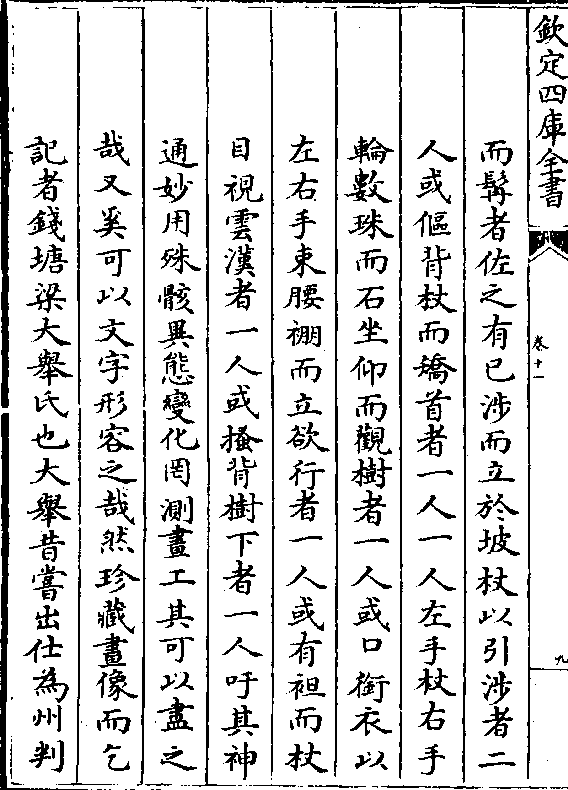 欽定四庫全書
卷十一
九
而髯者佐之有已涉而立於坡杖以引涉者二
人或傴背杖而矯首者一人一人左手杖右手
輪數珠而石坐仰而觀樹者一人或口銜衣以
左右手束腰裍而立欲行者一人或有袒而杖
目視雲漢者一人或搔背樹下者一人吁其神
通妙用殊骸異態變化罔測畫工其可以盡之
哉又奚可以文字形容之哉然珍藏畫像而乞
記者錢塘梁大舉氏也大舉昔嘗出仕為州判